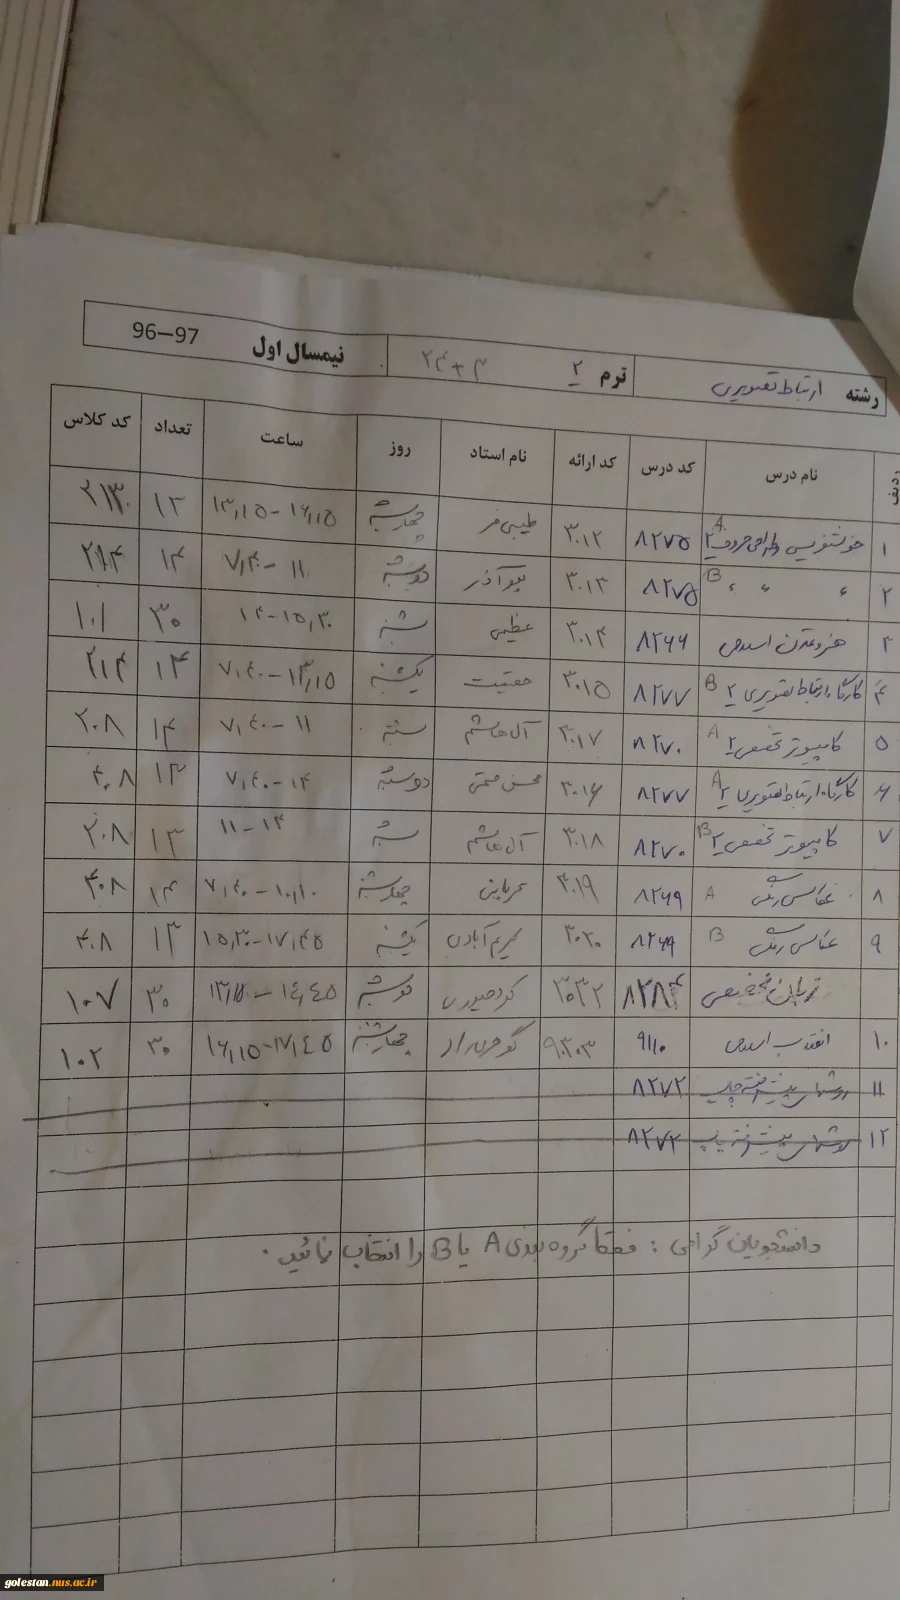 رشته ارتباط تصویری ترم ۲ ۳+۲۴ نیمسال اول 96–97
ردیف نام درس کد درس کد ارائه نام استاد روز ساعت تعداد کد کلاس
۱ خوشنویسی و طراحی حروف ۲ A ۸۲۷۵ ۳۰۱۲ طیبی فر چهارشنبه ۱۳,۱۵-۱۶,۱۵ ۱۳
۲ " " " B ۸۲۷۵ ۳۰۱۳ دوشنبه ۷,۴۰-۱۱ ۱۴
۳ هنر و تمدن اسلامی ۸۲۶۶ ۳۰۱۴ عظیمی شنبه ۱۴-۱۵,۳۰ ۳۰ ۱۰۱
۴ کارگاه ارتباط تصویری ۲ B ۸۲۷۷ ۳۰۱۵ حقیقت یکشنبه ۱۴ ۲۱۴
۵ کامپیوتر تخصصی ۲ A ۸۲۷۰ ۳۰۱۷ آل هاشم ۷,۴۰-۱۱ ۱۴ ۲۰۸
۶ کارگاه ارتباط تصویری ۲ A ۸۲۷۷ ۳۰۱۶ دوشنبه ۷,۴۰-۱۴ ۱۳ ۴۰۸
۷ کامپیوتر تخصصی ۲ B ۸۲۷۰ ۳۰۱۸ آل هاشم ۱۱-۱۴ ۱۳ ۲۰۸
۸ عکاسی رنگی A ۸۲۶۹ ۳۰۱۹ چهارشنبه ۷,۴۰-۱۰,۱۰ ۱۴
۹ عکاسی رنگی B ۸۲۶۹ ۳۰۲۰ کریم آبادی یکشنبه ۱۵,۳۰-۱۷,۴۵ ۱۳ ۴۰۸
زبان تخصصی ۸۲۸۴ ۳۰۳۲ دوشنبه ۳۰ ۱۰۷
۱۰ انقلاب اسلامی ۹۱۱۰ ۹۰۳۰۳ چهارشنبه ۱۶,۱۵-۱۷,۴۵ ۳۰ ۱۰۲
۱۱ روشهای پیشرفته چاپ ۸۲۷۲
۱۲ روشهای پیشرفته چاپ ۸۲۷۲
دانشجویان گرامی : فقط گروه بندی A یا B را انتخاب نمائید.
golestan.nus.ac.ir